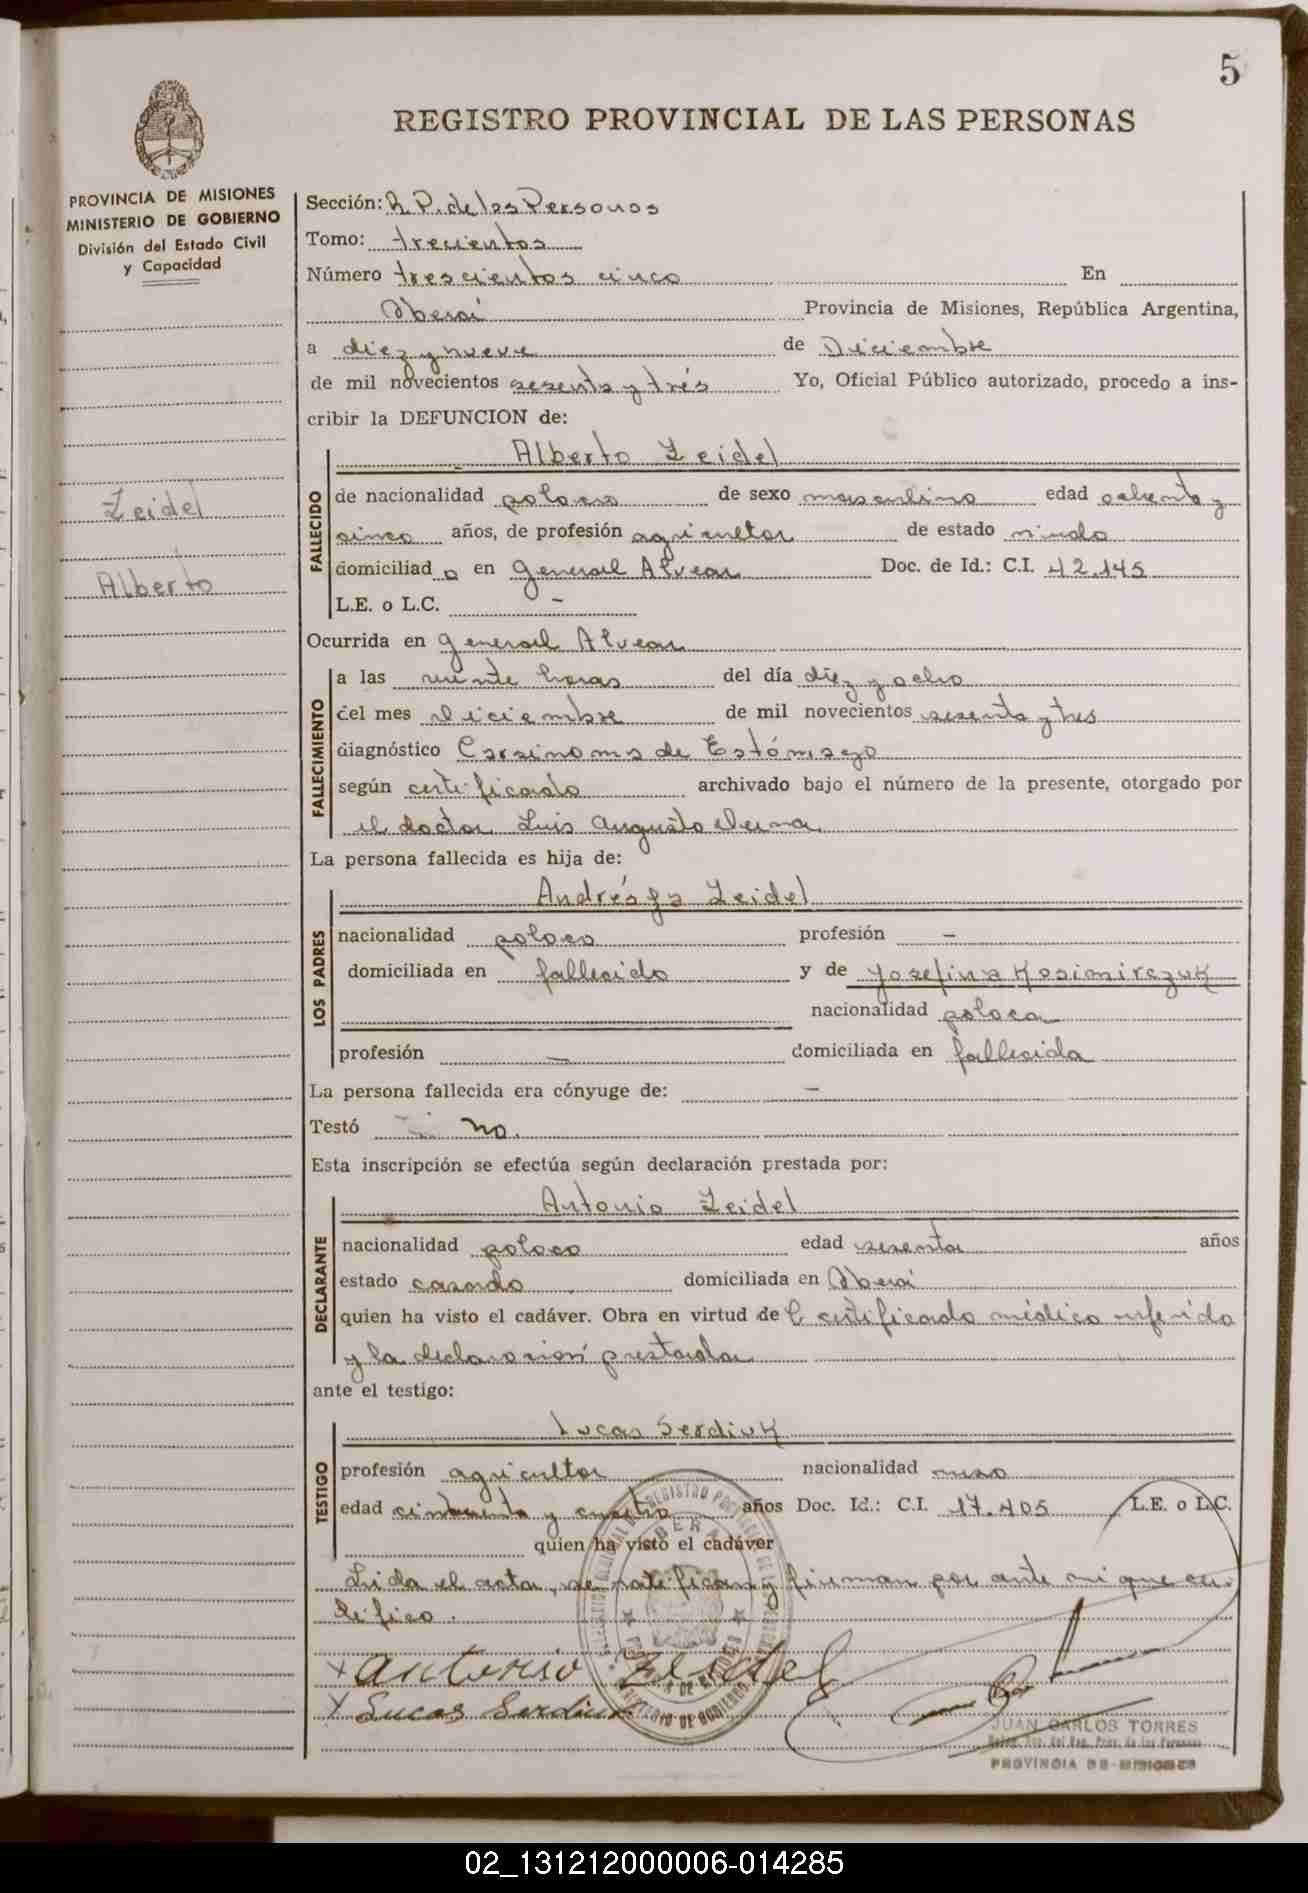 5
REGISTRO PROVINCIAL DE LAS PERSONAS
PROVINCIA DE MISIONES
MINISTERIO DE GOBIERNO
División del Estado Civil
y Capacidad
Zeidel
Alberto
Sección: R. P. de las Personas
Tomo: trecientos
Número trescientos cinco En
Oberá Provincia de Misiones, República Argentina,
a diez y nueve de Diciembre
de mil novecientos sesenta y trés Yo, Oficial Público autorizado, procedo a ins-
cribir la DEFUNCION de:
Alberto Zeidel
FALLECIDO
de nacionalidad polaco de sexo masculino edad ochenta y
cinco años, de profesión agricultor de estado viudo
domiciliad o en General Alvear Doc. de Id.: C.I. 42.145
L.E. o L.C. -
Ocurrida en General Alvear
FALLECIMIENTO
a las veinte horas del día diez y ocho
del mes Diciembre de mil novecientos sesenta y tres
diagnóstico Carsinoma de Estómago
según certificado archivado bajo el número de la presente, otorgado por
el doctor Luis Augusto
La persona fallecida es hija de:
LOS PADRES
Zeidel
nacionalidad polaco profesión -
domiciliada en fallecido y de Yosefina Kosimirczuk
nacionalidad polaca
profesión - domiciliada en fallecida
La persona fallecida era cónyuge de: -
Testó no.
Esta inscripción se efectúa según declaración prestada por:
DECLARANTE
Antonio Zeidel
nacionalidad polaco edad sesenta años
estado casado domiciliada en Oberá
quien ha visto el cadáver. Obra en virtud de l certificado médico referido
y la declaración prestada
ante el testigo:
TESTIGO
Lucas Serdiuk
profesión agricultor nacionalidad ruso
edad cincuenta y cuatro años Doc. Id.: C.I. 17.405 L.E. o L.C.
quien ha visto el cadáver
Leida el acta, se ratifican y firman por ante mi que cer-
tifico.
x Antonio Zeidel
x Lucas Serdiuk
JUAN CARLOS TORRES
PROVINCIA DE MISIONES
02_131212000006-014285